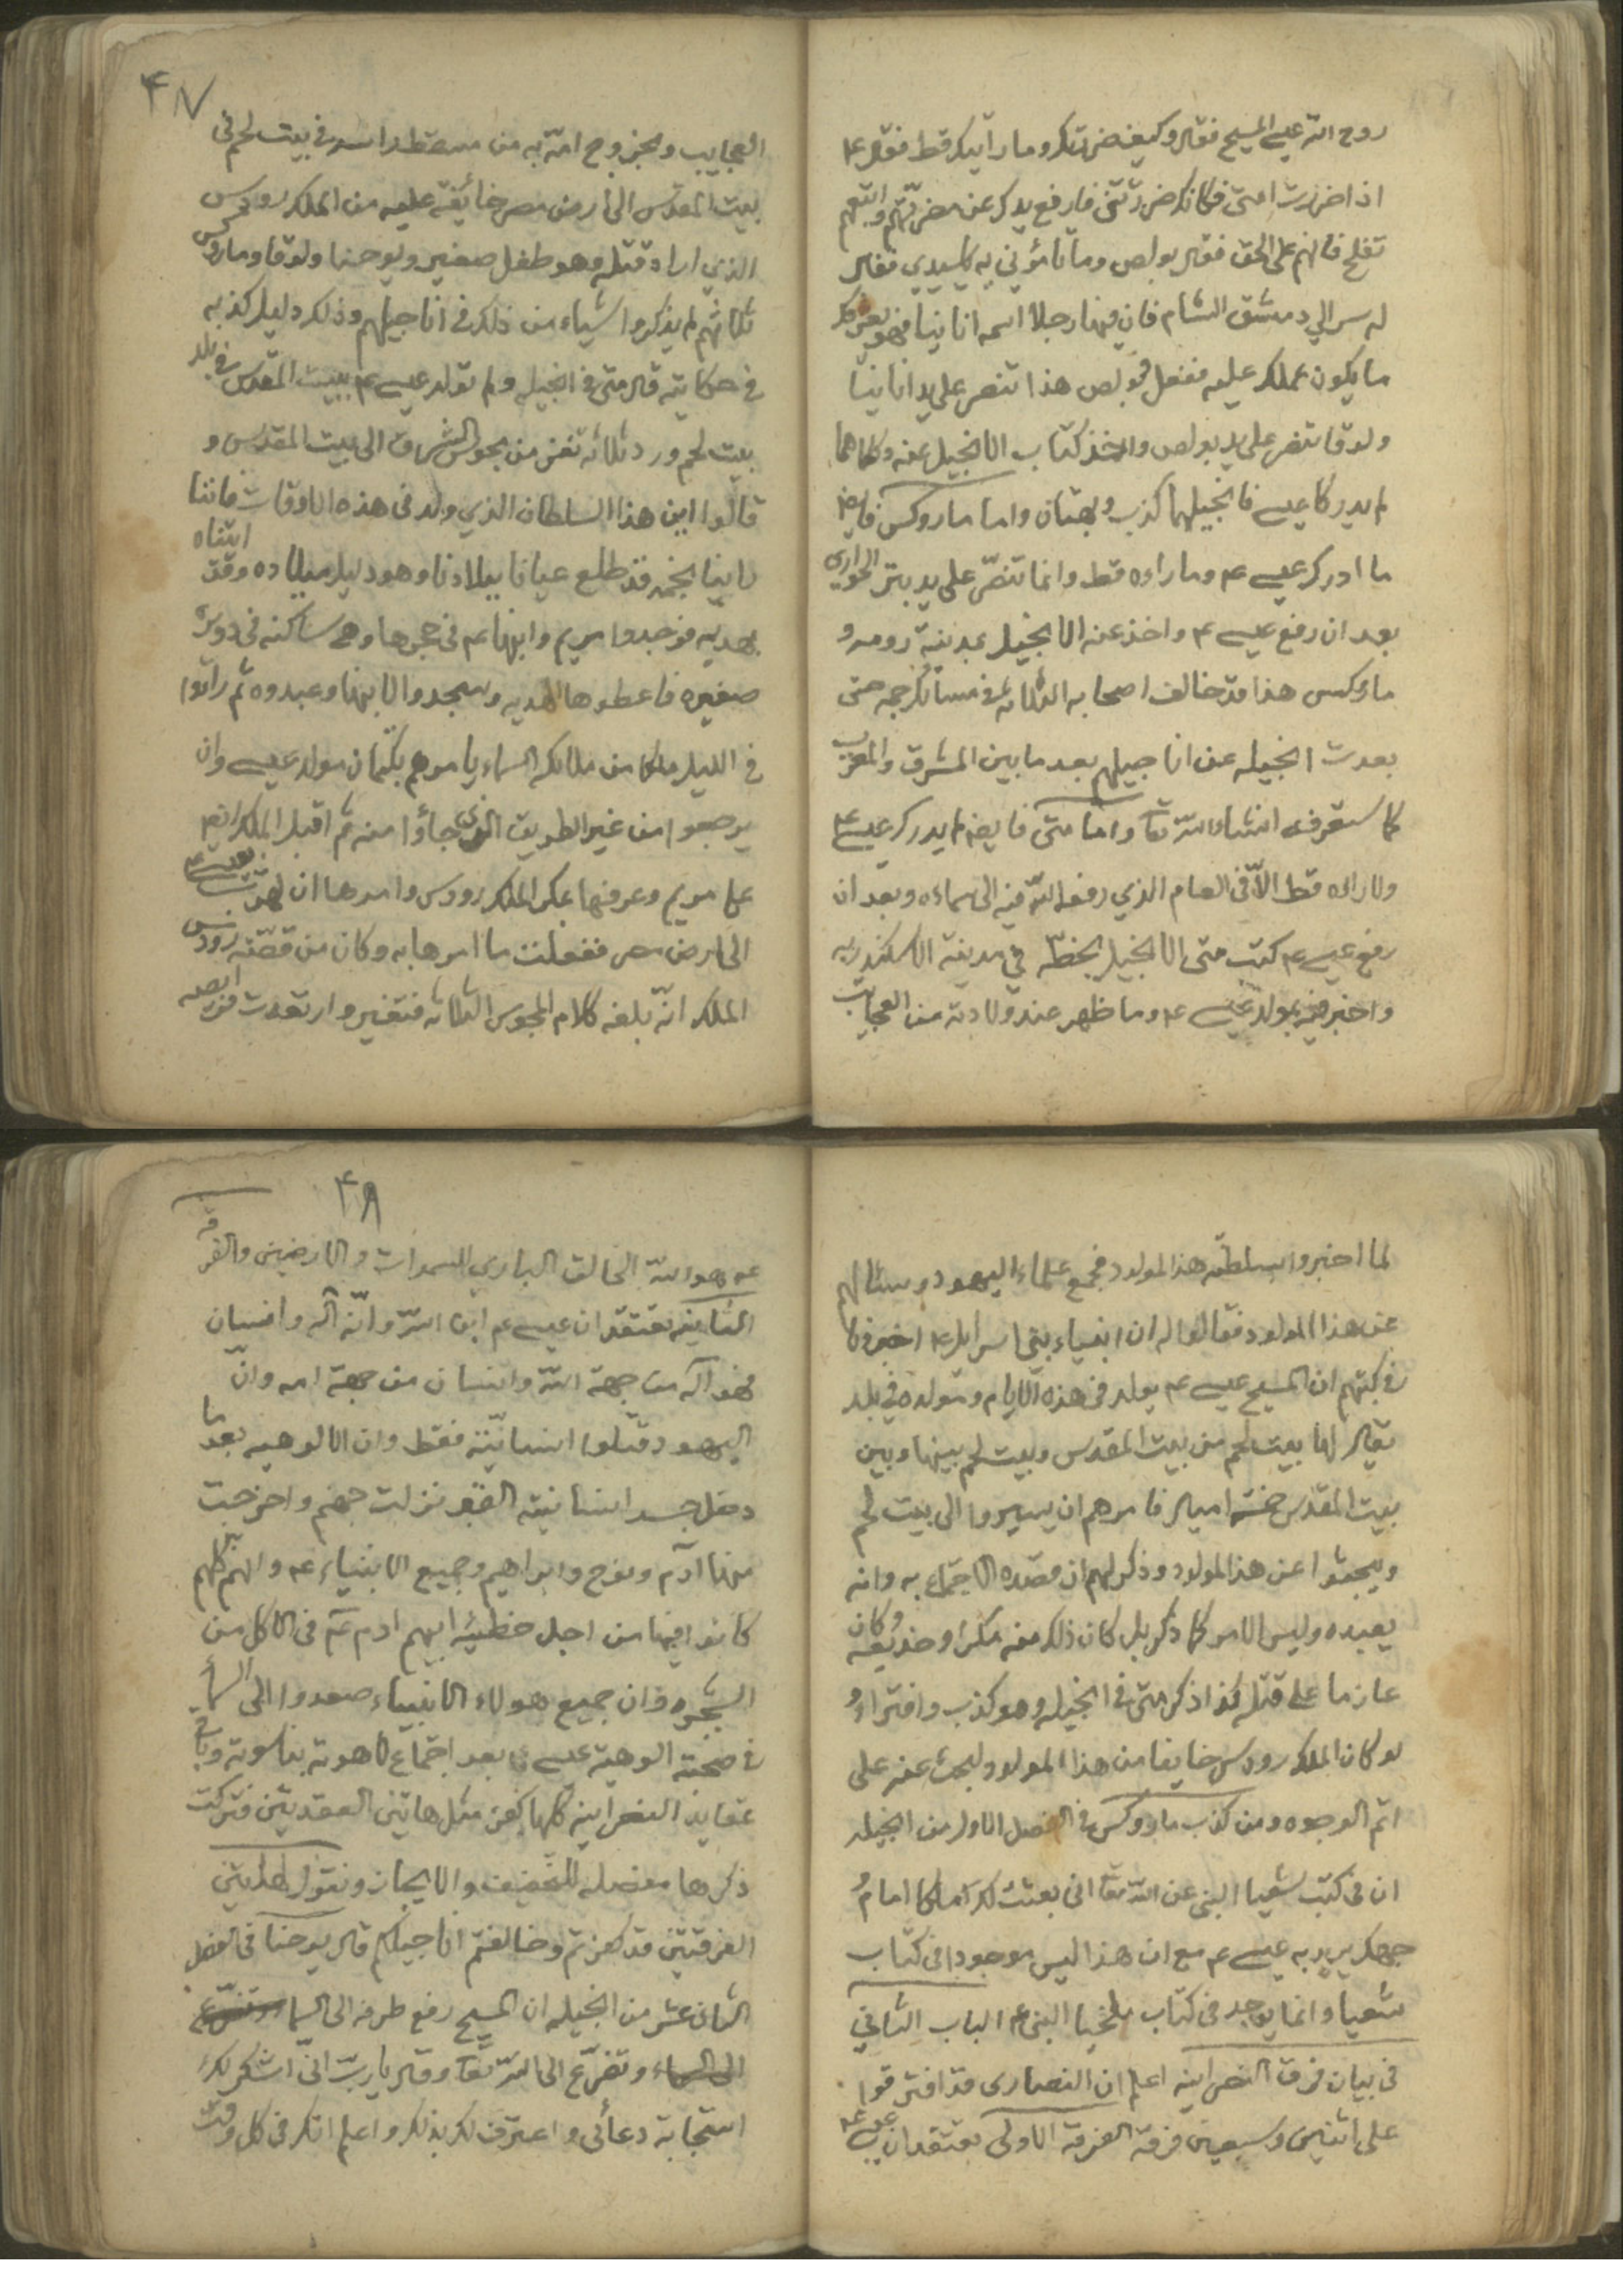 روح الله عيسى المسيح فقال وكيف ضررتك وما رأيتك قط فقال ع
اذا ضررت امتى فكانك ضررتنى فارفع يدك عن مضرتهم واتبعهم
تفلح فانهم على الحق فقال بولص وما تأمرني به يا سيدي فقال
له سر الي دمشق الشام فان فيها رجلا اسمه انانيا فهو يعرفك
ما يكون عملك عليه ففعل فبولص هذا تنصر على يد انانيا
ولوقا تنصر على يد بولص واخذ كتاب الانجيل عنه وكلاهما
لم يدركا عيسى فانجيلهما كذب وبهتان واما ماروكس فايضا
ما ادرك عيسى ع وما راءه قط وانما تنصّر على يد بتر الحوارى
بعد ان رفع عيسى ع واخذ عنه الانجيل بمدينة رومه و
ماروكس هذا قد خالف اصحابه الثلاثه فى مسائل جمه حتى
بعدت انجيله عن اناجيلهم بعد ما بين المشرق والمغرب
كما ستعرفه انشاءالله تعا واما متى فايضا لم يدرك عيسى ع
ولا راه قط الاّ فى العام الذي رفعه الله فيه الى سماءه وبعد ان
رفع عيسى ع كتب متى الانجيل بخطّه في مدينة الاسكندريه
واخبر فيه بمولد عيسى ع وما ظهر عند ولادته من العجايب
۴۷
العجايب وبخروج امّه به من مسقط راسه فى بيت لحم فى
بيت المقدس الى ارض مصر خائفة عليه من الملك رودس
الذي اراد قتله وهو طفل صغير ويوحنا ولوقا وماروكس
ثلاثهم لم يذكروا شياء من ذلك فى اناجيلهم وذلك دليل كذبه
فى حكايته قال متى فى انجيله ولم تولد عيسى ع ببيت المقدس فى بلد
بيت لحم ورد ثلاثه نفر من مجوس الشرق الى بيت المقدس و
قالوا اين هذا السلطان الذي ولد فى هذه الاوقات فاننا
راينا نجمه قد طلع عيانا ببلادنا وهو دليل ميلاده وقد اتيناه
بهديه فوجدوا مريم وابنها ع فى حجرها وهى ساكنه فى دويره
صغيره فاعطوها الهديه وسجدوا لابنها وعبدوه ثم راتوا
فى الليل ملكا من ملائكه السماء يامرهم بكتمان مولد عيسى وان
يرجعوا من غير الطريق الذي جاؤا منه ثم اقبل الملك ايضا
على مريم وعرفها بمكر الملك رودس وامرها ان تهرب بعيسى ع
الى ارض مصر ففعلت ما امرها به وكان من قصّته رودس
الملك انّه بلغه كلام المجوس الثلاثه فتغير وارتعدت فرايصه
لما اخبروا بسلطنه هذا المولود فجمع علماء اليهود وسئالهم
عن هذا المولود فقالوا له ان انبياء بنى اسرائل ع اخبرونا
فى كتبهم ان المسيح عيسى ع يولد فى هذه الايام ومولده في بلد
يقال لها بيت لحم من بيت المقدس وبيت لحم بينها وبين
بيت المقدس خمسة اميال فامرهم ان يسيروا الى بيت لحم
ويبحثوا عن هذا المولود وذكر لهم ان قصده الاجتماع به وانه
يعبده وليس الامر كما ذكر بل كان ذلك منه مكرا وخديعه وكان
عازما على قتله كذا ذكر متى فى انجيله وهو كذب وافتراء و
لو كان الملك رودس خايفا من هذا المولود لبحث عنه على
اتم الوجوه ومن كذب ماروكس فى الفصل الاول من انجيله
ان فى كتب شعيا النبى عن الله تعا انى بعثت لك املاكا امام
جهك يريد به عيسى ع مع ان هذا ليس موجودا فى كتاب
شعيا وانما يوجد فى كتاب ملخيا النبى ع الباب الثاني
فى بيان فرق النصرانيه اعلم ان النصارى قد افترقوا
على اثنين وسبعين فرقه الفرقه الاولى تعتقد ان عيسى ع
۴۸
ع هو الله الخالق الباري للسموات والارضين والفرقه
الثانيه تعتقد ان عيسى ع ابن الله وانّه آله وانسان
فهو آله من جهة الله وانسان من جهة امه وانّ
اليهود قتلوا انسانيّته فقط وان الالوهيه بعد ما
دخل جسد انسانيته القبر نزلت جهنم واخرجت
منها آدم ونوح وابراهيم وجميع الانبياء ع والهم كلهم
كانوا فيها من اجل خطيئه ابيهم ادم ع فى الاكل من
الشجره وان جميع هولاء الانبياء صعدوا الى السماء
فى صحبة الوهية عيسى بعد اجتماع لاهوته بناسوته وباقى
عقايد النصرانيه كلها كفر مثل هاتين العقديتين فتركت
ذكرها مفصله للتخفيف والايجاز ونقول لهاتين
الفرقتين قد كفرتم وخالفتم اناجيلكم قال يوحنا فى الفصل
الثان عشر من انجيله ان المسيح رفع طرفه الى السما
الى السماء وتضرّع الى الله تعا وقال يا ربّ انّى اشكر لك
استجابة دعائى واعترف لك بذلك واعلم انك فى كل وقت